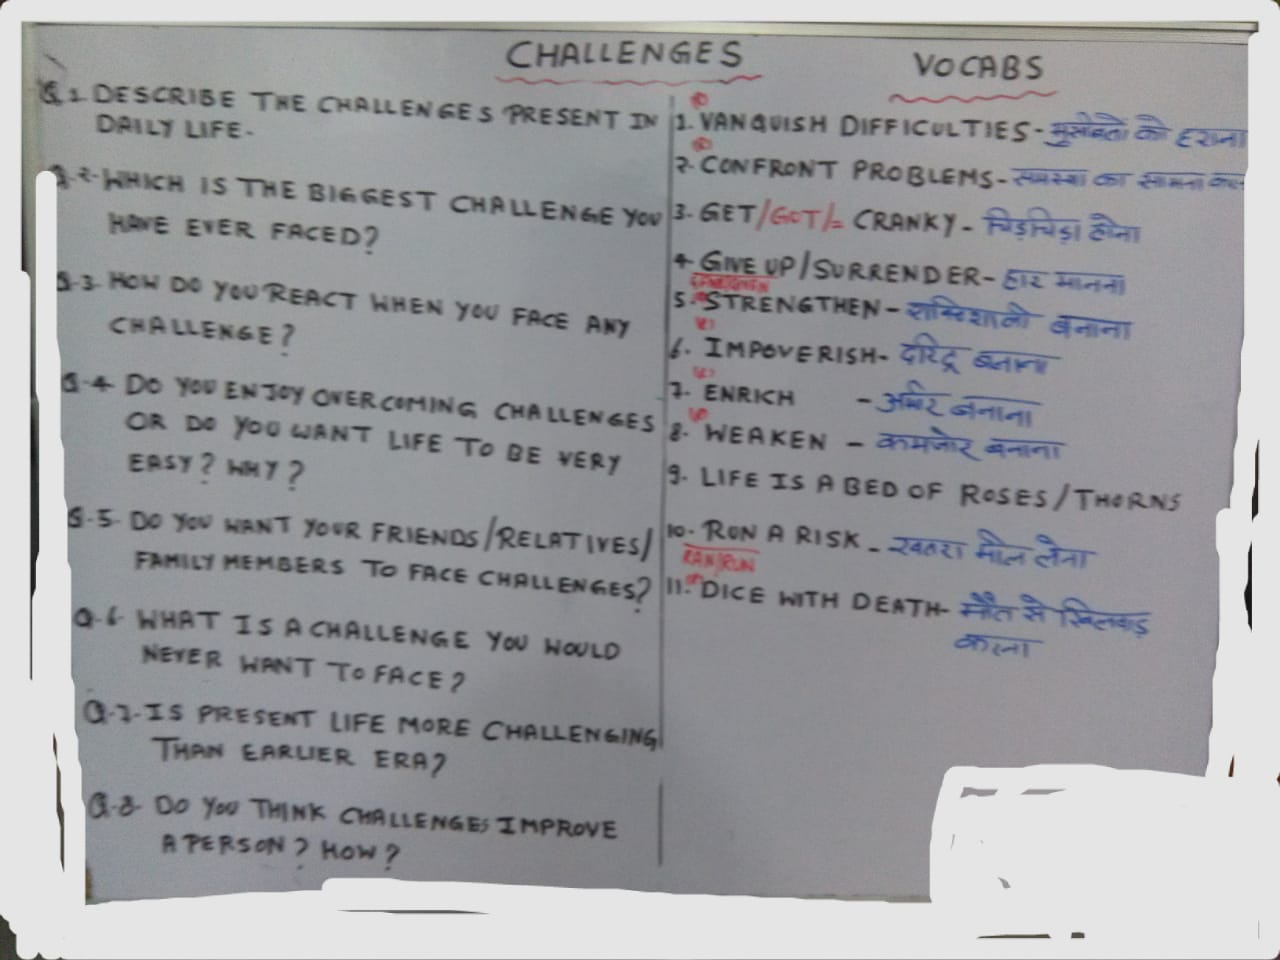 CHALLENGES
Q.1. DESCRIBE THE CHALLENGES PRESENT IN
DAILY LIFE.
Q.2. WHICH IS THE BIGGEST CHALLENGE YOU
HAVE EVER FACED?
Q.3. HOW DO YOU REACT WHEN YOU FACE ANY
CHALLENGE?
Q.4. DO YOU ENJOY OVERCOMING CHALLENGES
OR DO YOU WANT LIFE TO BE VERY
EASY? WHY?
Q.5. DO YOU WANT YOUR FRIENDS/RELATIVES/
FAMILY MEMBERS TO FACE CHALLENGES?
Q.6. WHAT IS A CHALLENGE YOU WOULD
NEVER WANT TO FACE?
Q.7. IS PRESENT LIFE MORE CHALLENGING
THAN EARLIER ERA?
Q.8. DO YOU THINK CHALLENGES IMPROVE
A PERSON? HOW?
VOCABS
1. VANQUISH DIFFICULTIES - मुसीबतों को हराना
2. CONFRONT PROBLEMS - समस्या का सामना
3. GET/GOT/= CRANKY - चिड़चिड़ा होना
4. GIVE UP/SURRENDER - हार मानना
5. STRENGTHEN - शक्तिशाली बनाना
6. IMPOVERISH - दरिद्र बनाना
7. ENRICH - अमिर बनाना
8. WEAKEN - कमजोर बनाना
9. LIFE IS A BED OF ROSES/THORNS
10. RUN A RISK - खतरा मोल लेना
RAN/RUN
11. DICE WITH DEATH - मौत से खिलवाड़
करना